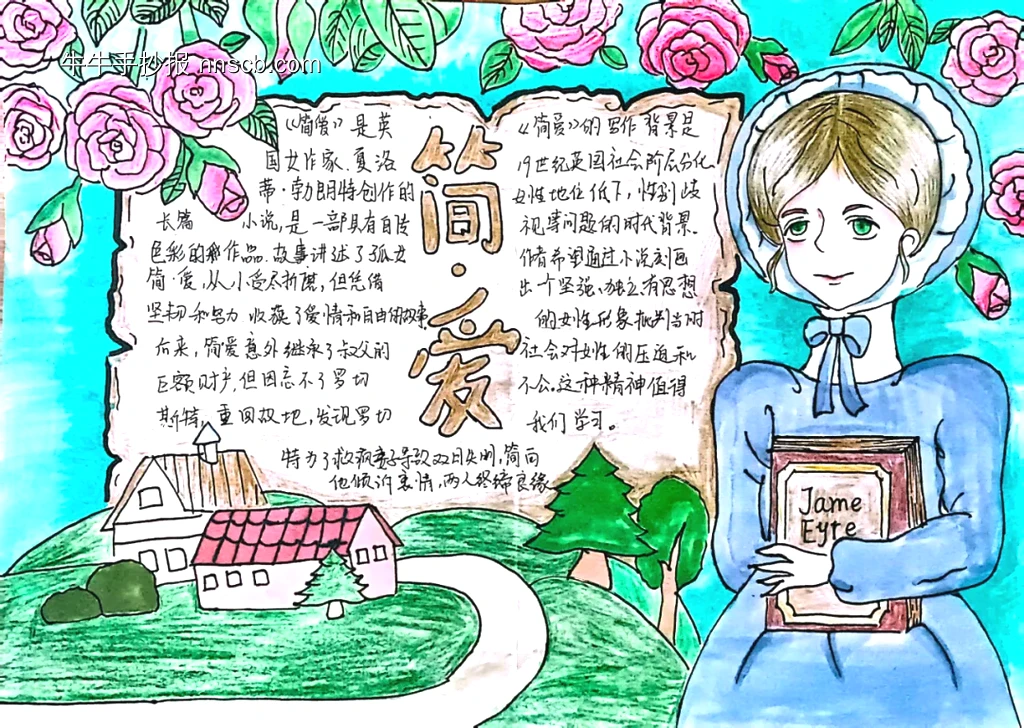 牛牛手抄报 nnscb.com
简·爱
《简爱》是英
国女作家.夏洛
蒂·勃朗特创作的
长篇 小说,是一部具有自传
色彩的作品.故事讲述了孤女
简·爱,从小受尽折磨,但凭借
坚韧和努力 收获了爱情和自由的故事
后来,简爱意外继承了叔父的
巨额财产,但因忘不了罗切
斯特,重回故地,发现罗切
特为了救疯妻子导致双目失明,简向
他倾诉衷情,两人终缔良缘
《简爱》的写作背景是
19世纪英国社会阶层分化
女性地位低下,性别歧
视等问题的时代背景.
作者希望通过小说刻画
出一个坚强、独立,有思想
的女性形象批判当时
社会对女性的压迫和
不公.这种精神值得
我们学习。
Jame
Eyre